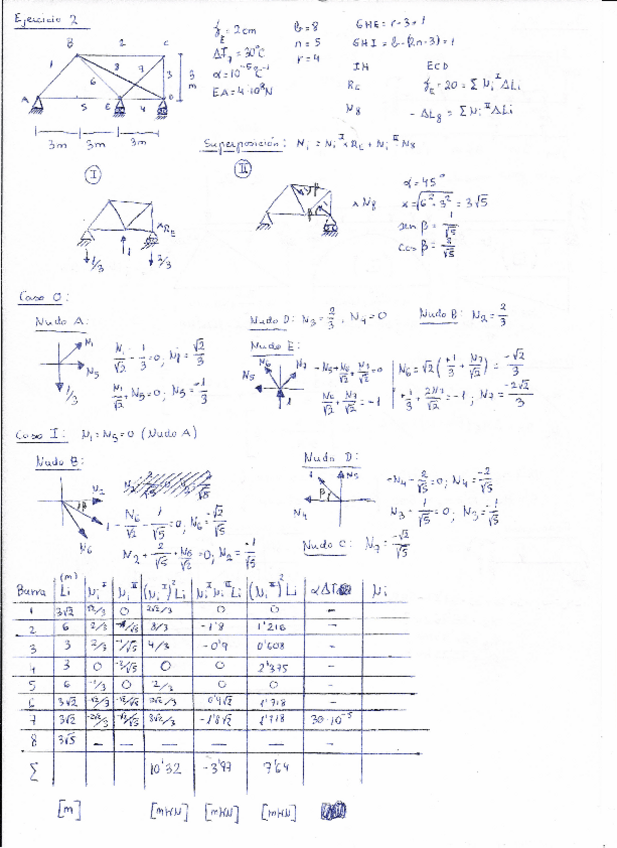 Ejercicio 2
B 2 C
1 8 7 3
6
A 5 E 4 D
3m
3m 3m 3m
f_E = 2cm
ΔT_7 = 30ºC
α = 10^-5 ºC^-1
EA = 4·10^8 N
b = 8
n = 5
r = 4
GHE = r-3 = 1
GHI = b-(2n-3) = 1
IH ECD
R_E f_E = 20 = Σ N_i^I ΔLi
N_8 - ΔL_8 = Σ N_i^II ΔLi
Superposición: N_i = N_i^I × R_E + N_i^II · N_8
I
II
× R_E
1/3 1 2/3
× N_8
α = 45º
x = √(6²+3²) = 3√5
sen β = 1/√5
cos β = 2/√5
Caso 0:
Nudo A:
N_1 N_5 1/3
N_1/√2 - 1/3 = 0; N_1 = √2/3
N_1/√2 + N_5 = 0; N_5 = -1/3
Nudo D: N_3 = 2/3, N_4 = 0
Nudo B: N_2 = 2/3
Nudo E:
N_6 N_7 N_5 1
-N_5 - N_6/√2 + N_7/√2 = 0
N_6/√2 + N_7/√2 = -1
N_6 = √2 (1/3 + N_7/√2) = -√2/3
+1/3 + 2N_7/√2 = -1; N_7 = -2√2/3
Caso I: N_1 = N_5 = 0 (Nudo A)
Nudo B:
N_2 β 1 N_6
-N_6/√2 - 1/√5 = 0; N_6 = -√2/√5
N_2 + 2/√5 + N_6/√2 = 0; N_2 = -1/√5
Nudo D:
1 N_3 β N_4
-N_4 - 2/√5 = 0; N_4 = -2/√5
N_3 - 1/√5 = 0; N_3 = -1/√5
Nudo C: N_7 = -√2/√5
Barra (m) Li N_i^I N_i^II (N_i^I)² Li N_i^I N_i^II Li (N_i^II)² Li αΔT Ni
1 3√2 √2/3 0 2√2/3 0 0 -
2 6 2/3 -1/√5 8/3 -1'8 1'216 -
3 3 2/3 -1/√5 4/3 -0'9 0'608 -
4 3 0 -2/√5 0 0 2'375 -
5 6 -1/3 0 2/3 0 0 -
6 3√2 -√2/3 -√2/√5 0'9√2 1'718 -
7 3√2 -2√2/3 -√2/√5 8√2/3 -1'8√2 1'718 30·10^-5
8 3√5 - - - - - -
Σ 10'32 -3'97 7'64
[m] [mKN] [mKN] [mKN]